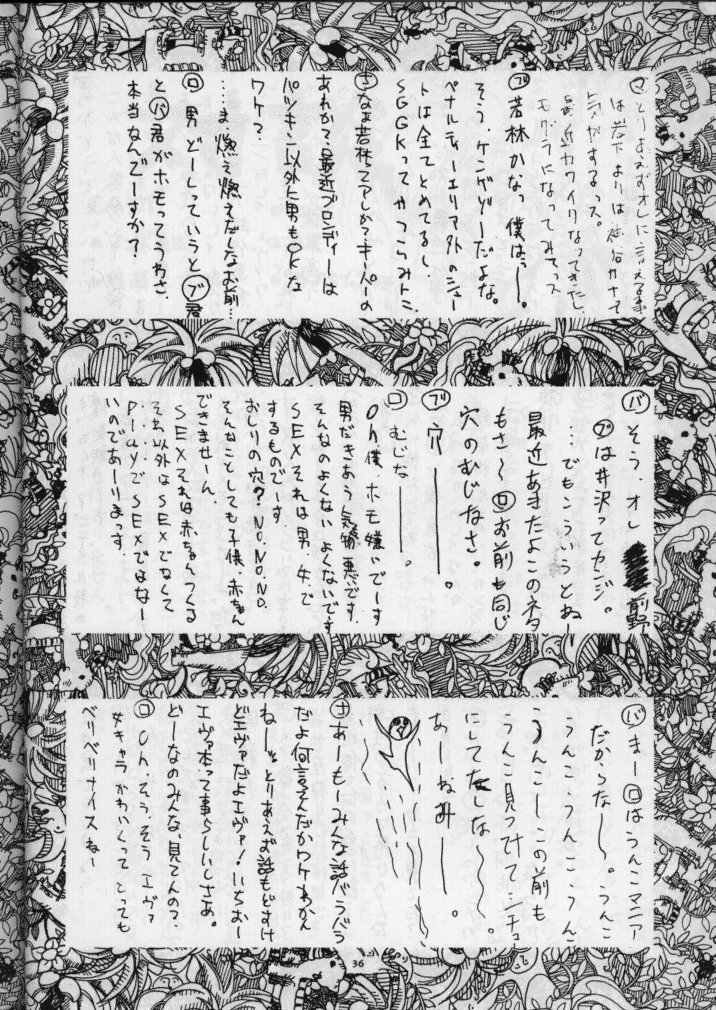 マ とりあえずオレに言える事
は岩下よりは
気がするっス。
最近カワイクなってきたし
モグラになってみてっス
ブ 若林かなっ僕はっー。
そう、ケンゲドーだよな。
ペナルティーエリア外のシュー
トは全てとめてるし、
SGGKってやつらみトニ
なま若林ってアレか?キーパーの
あれか?、最近ブロンディーは
パツキン以外に男もOKな
ワケ?
…ま、燃え燃えだしなお前…
ロ 男どーしっていうとブ君
とバ君がホモってうわさ、
本当なんでーすか?
バ そう、オレ 前野
ブは井沢ってカンジ。
…でもこういうとねー
最近あきたよこのネタ
もさ〜ロお前も同じ
穴のむじなさ。
ブ 穴――。
ロ むじな――。
Oh 僕、ホモ嫌いでーす
男だきあう気物悪いです
そんなのよくないよくないです
SEXそれは男、女で
するものでーす
おしりの穴?NO.NO.NO.
そんなことしても子供、赤ちゃん
できませーん.
SEXそれは赤ちゃんつくる
それ以外はSEXでなくて
……PlayでSEXではなー
いのであーりまっす.
バ まーロはうんこマニア
だからなー〜。うんこ
うんこ、うんこ、うんこ
うんこーこの前も
うんこ見っけてレンチュ
にしてたしな〜〜。
あーねみー。
ナ あーもーみんな話バラバラ
だよ何言ってんだかワケわかん
ねー。とりあえず話もどすけ
どエヴァだよエヴァ!いちおー
エヴァ本って事らしいしさあ。
どーなのみんな、見てんの?
ロ Oh.そう、そうエヴァ
女キャラかわいくってとっても
ベリベリナイスねー
36